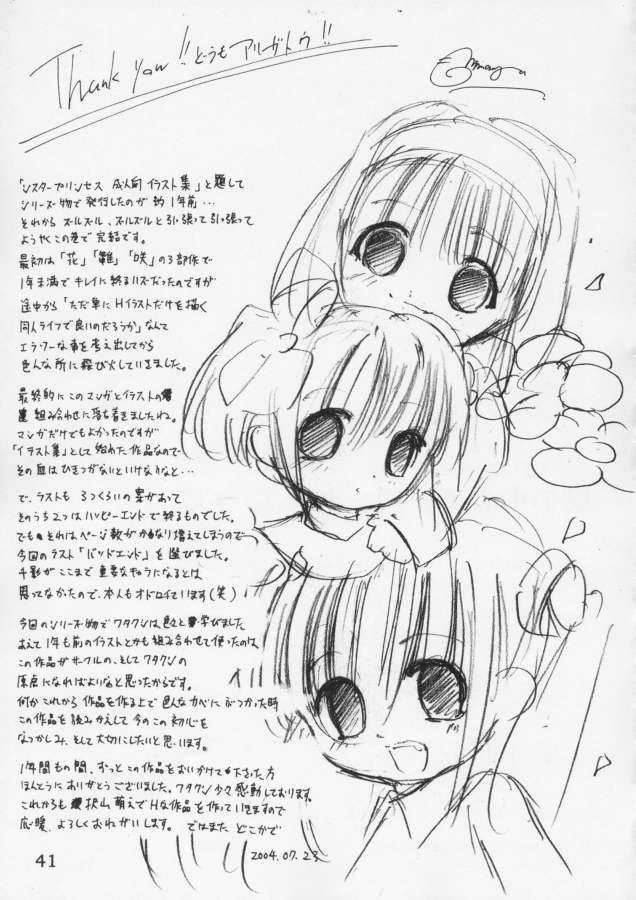 Thank you!! どうも アリーガトウ!!
「シスタープリンセス 成人向 イラスト集」と題して
シリーズ物で発行したのが 約1年前…
それから ズールズール、ズルズルと引っ張って引っ張って
ようやくこの巻で完結です。
最初は「花」「雛」「咲」の3部作で
1年未満でキレイに終るハズだったのですが
途中から「ただ単にHイラストだけを描く
同人ライフで良いのだろうか」なんて
エラソーな事を考え出してから
色んな所に飛び火していきました。
最終的にこのマンガとイラストの
組み合わせに落ち着きましたね。
マンガだけでもよかったのですが
「イラスト集」として始めた作品なので
その血はひきつがないといけないなと…
で、ラストも 3つくらいの案があって
そのうち2つはハッピーエンドで終るものでした。
でも それはページ数がかなり増えてしまうので
今回のラスト「バッドエンド」を選びました。
千影がここまで重要なキャラになるとは
思ってなかったので、本人もオドロイています(笑)
今回のシリーズ物でワタクシは色々と学びました
あえて1年も前のイラストとかも組み合わせて使ったのは
この作品がサークルの、そしてワタクシの
原点になればよいなと思ったからです。
何かこれから作品を作る上で色んなカベにぶつかった時
この作品を読みかえして今のこの初心を
なつかしみ、そして大切にしたいと思います。
1年間もの間、ずっとこの作品をおいかけて下さった方
ほんとうにありがとうございました。ワタクシ少々感動しております。
これからも 沢山萌えでHな作品を作っていきますので
応援、よろしくおねがいします。 ではまた どこかで
2004.07.23
41